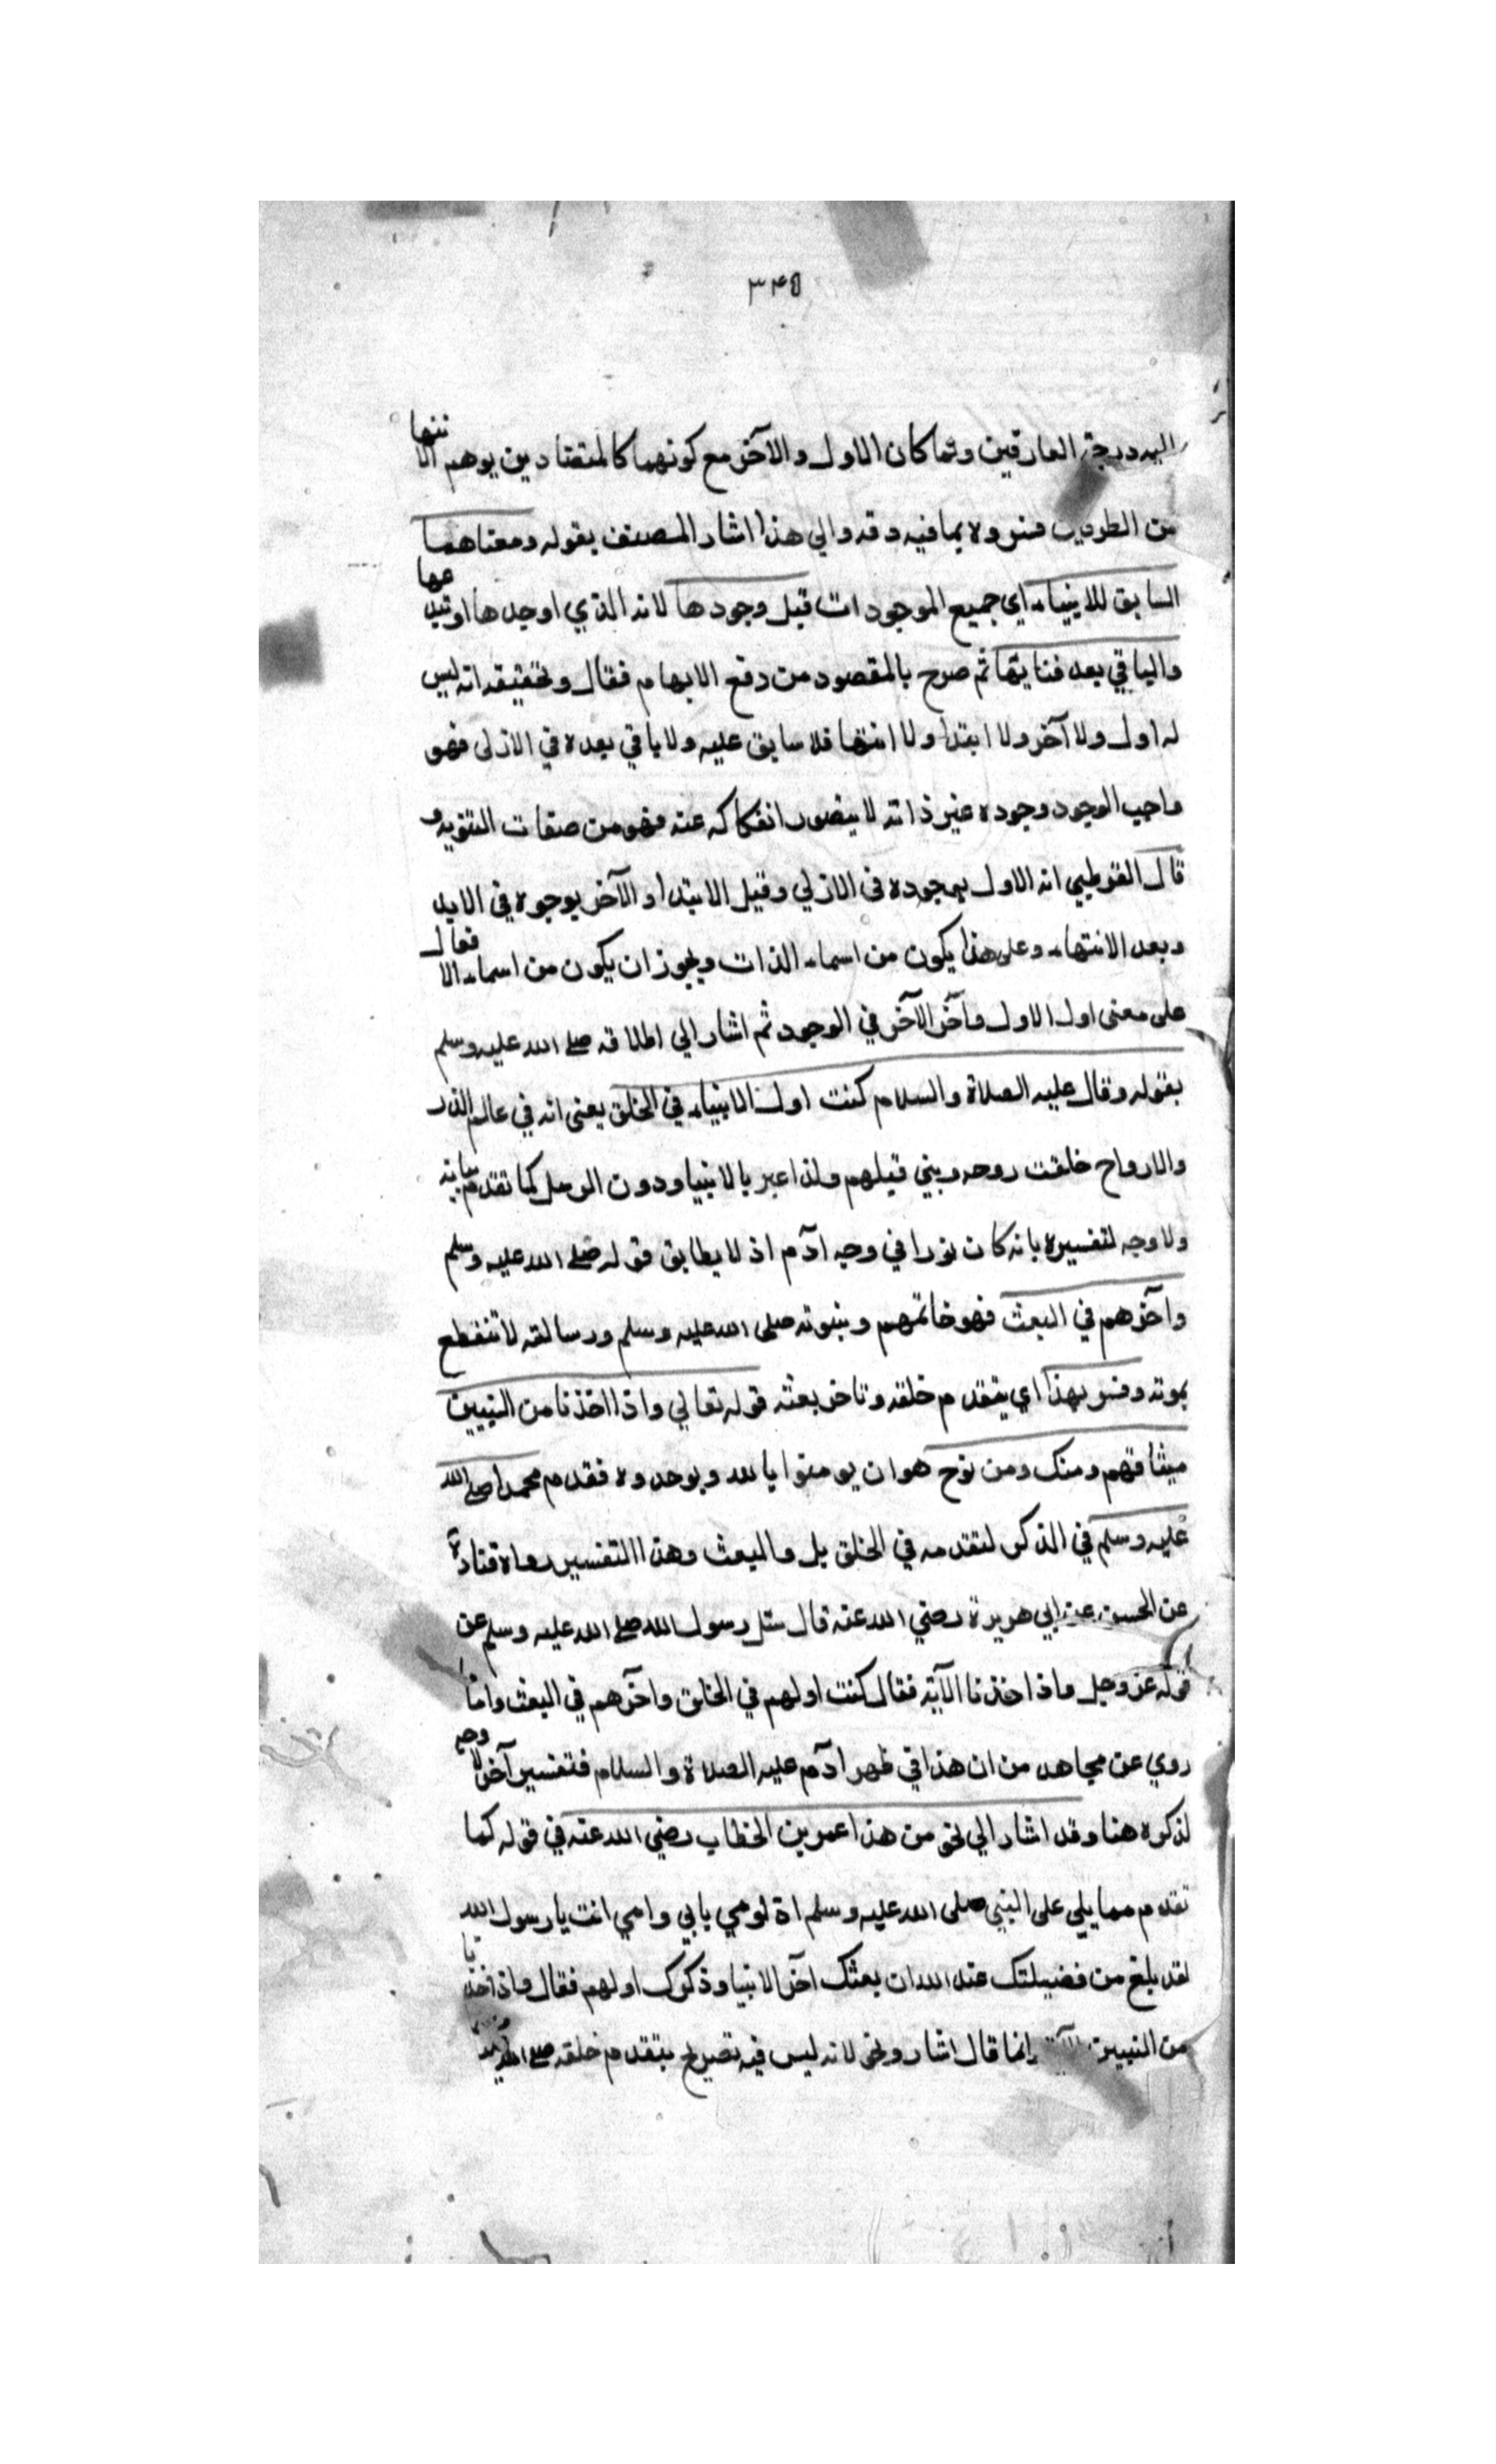 ٣٤٥
اليه درجة العارفين ولما كان الاول والآخر مع كونهما كالمتضادين يوهم الانتها
من الطرفين فسر ولا بمافيه دقه والي هذا اشار المصنف بقوله ومعناهما
السابق للاشياء اي جميع الموجودات قبل وجودها لانه الذي اوجدها او
والباقي بعد فنائها ثم صرح بالمقصود من دفع الايهام فقال وتحقيقه انه ليس
له اول ولا آخر ولا ابتدا ولا انتها فلا سابق عليه ولا باقي بعده في الازلى فهو
واجب الوجود وجوده عين ذاته لا يتصور انفكاكه عنه فهو من صفات التنزيه و
قال القرطبي انه الاول بوجوده فى الازلي وقبل الابتدا والآخر بوجوه في الابد
وبعد الانتهاء وعلى هذا يكون من اسماء الذات ويجوز ان يكون من اسماء الافعال
على معنى اول الاول وآخر الآخر في الوجود ثم اشار الي اطلاقه صلى الله عليه وسلم
بقوله وقال عليه الصلاة والسلام كنت اول الانبياء في الخلق يعنى انه في عالم الذر
والارواح خلقت روحه ونبي قبلهم ولذا عبر بالانبيا ودون الرسل كما تقدم
ولا وجه لتفسيره بانه كان نورا في وجه ادم اذ لا يطابق قوله صلى الله عليه وسلم
وآخرهم في البعث فهو خاتمهم ونبوته صلى الله عليه وسلم ورسالته لا تنقطع
بموته وفسر بهذا اي بتقدم خلقه وتاخر بعثه قوله تعالي واذ اخذنا من النبيين
ميثاقهم ومنك ومن نوح هو ان يومنوا بالله ويوحدوه فقدم محمدا صلى الله
عليه وسلم في الذكر لتقدمه في الخلق بل والبعث وهذا التفسير رواه قتادة
عن الحسن عن ابي هريرة رضي الله عنه قال سئل رسول الله صلى الله عليه وسلم عن
قوله عز وجل واذ اخذنا الآية فقال كنت اولهم في الخلق وآخرهم في البعث واما
روي عن مجاهد من ان هذا في ظهر ادم عليه الصلاة والسلام فتفسير آخر لا وجه
لذكره هنا وقد اشار الي نحو من هذا عمر بن الخطاب رضي الله عنه في قوله كما
تقدم مما يلي على النبي صلى الله عليه وسلم اذ لومي بابي وامي انت يا رسول الله
لقد بلغ من فضيلتك عند الله ان بعثك اخر الانبيا وذكرك اولهم فقال واذ اخذنا
من النبيين الآية وانما قال اشار ونحو لانه ليس فيه تصريح بتقدم خلقه صلى الله